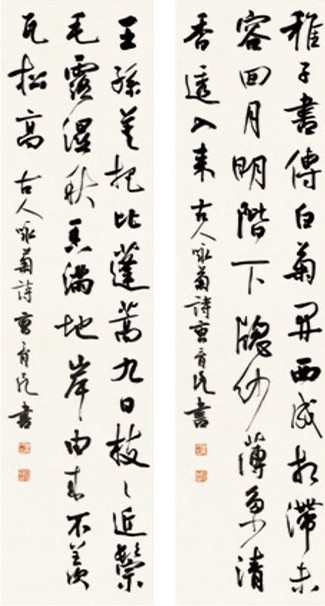 稚子書傳白菊開西成相滞未
容回月明階下牕紗薄多少清
香透入來 古人咏菊詩 書
王孫莫把比蓬蒿九日枝〻近鬢
毛露濕秋香滿地岸由來不羨
瓦松高 古人咏菊詩 書